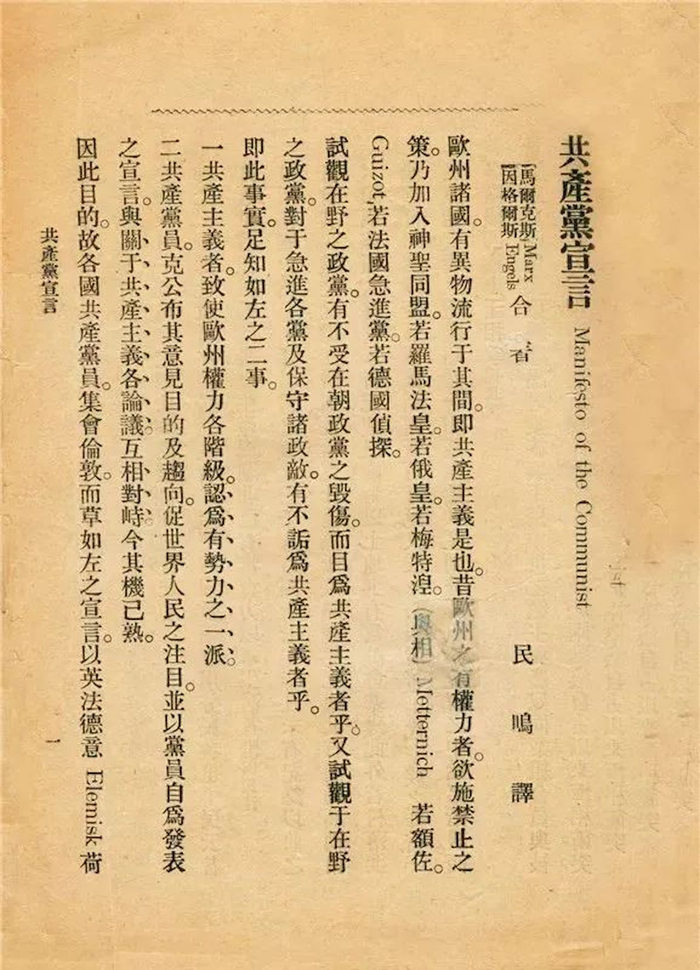 共產黨宣言 Manifesto of the Communist
馬爾克斯 Marx
因格爾斯 Engels
合著
民鳴譯
歐州諸國。有異物流行于其間。即共產主義是也。昔歐州之有權力者。欲施禁止之
策。乃加入神聖同盟。若羅馬法皇。若俄皇。若梅特湟。(奧相) Metternich 若額佐。
Guizot, 若法國急進黨。若德國偵探。
試觀在野之政黨。有不受在朝政黨之毀傷。而目爲共產主義者乎。又試觀于在野
之政黨。對于急進各黨及保守諸政敵。有不詬爲共產主義者乎。
即此事實。足知如左之二事。
一共產主義者。致使歐州權力各階級。認爲有勢力之一派。
二共產黨員。克公布其意見目的及趨向。促世界人民之注目。並以黨員自爲發表
之宣言。與關于共產主義各論議。互相對峙。今其機已熟。
因此目的。故各國共產黨員。集會倫敦。而草如左之宣言。以英法德意 Elemisk 荷
共產黨宣言
一